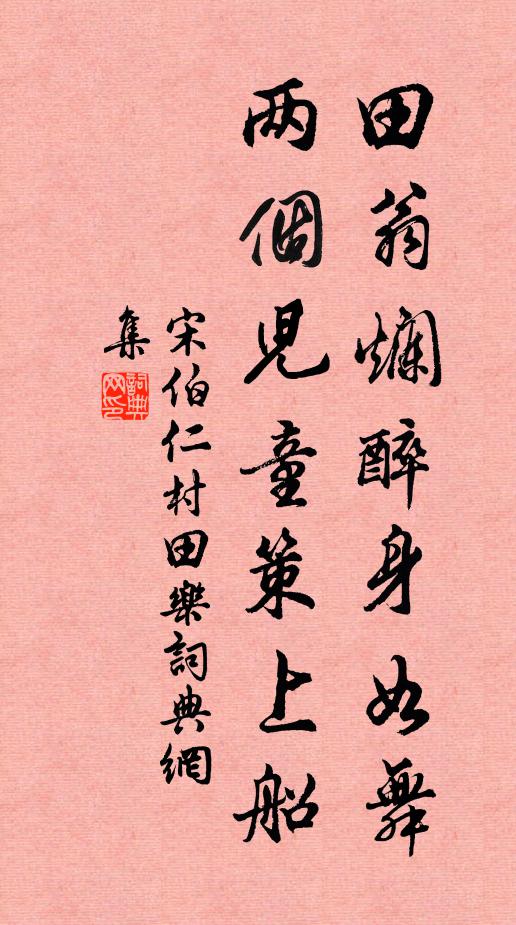 田翁爛醉身如舞
两個児童策上船
宋伯仁村田樂詞典網
集
詞典网印